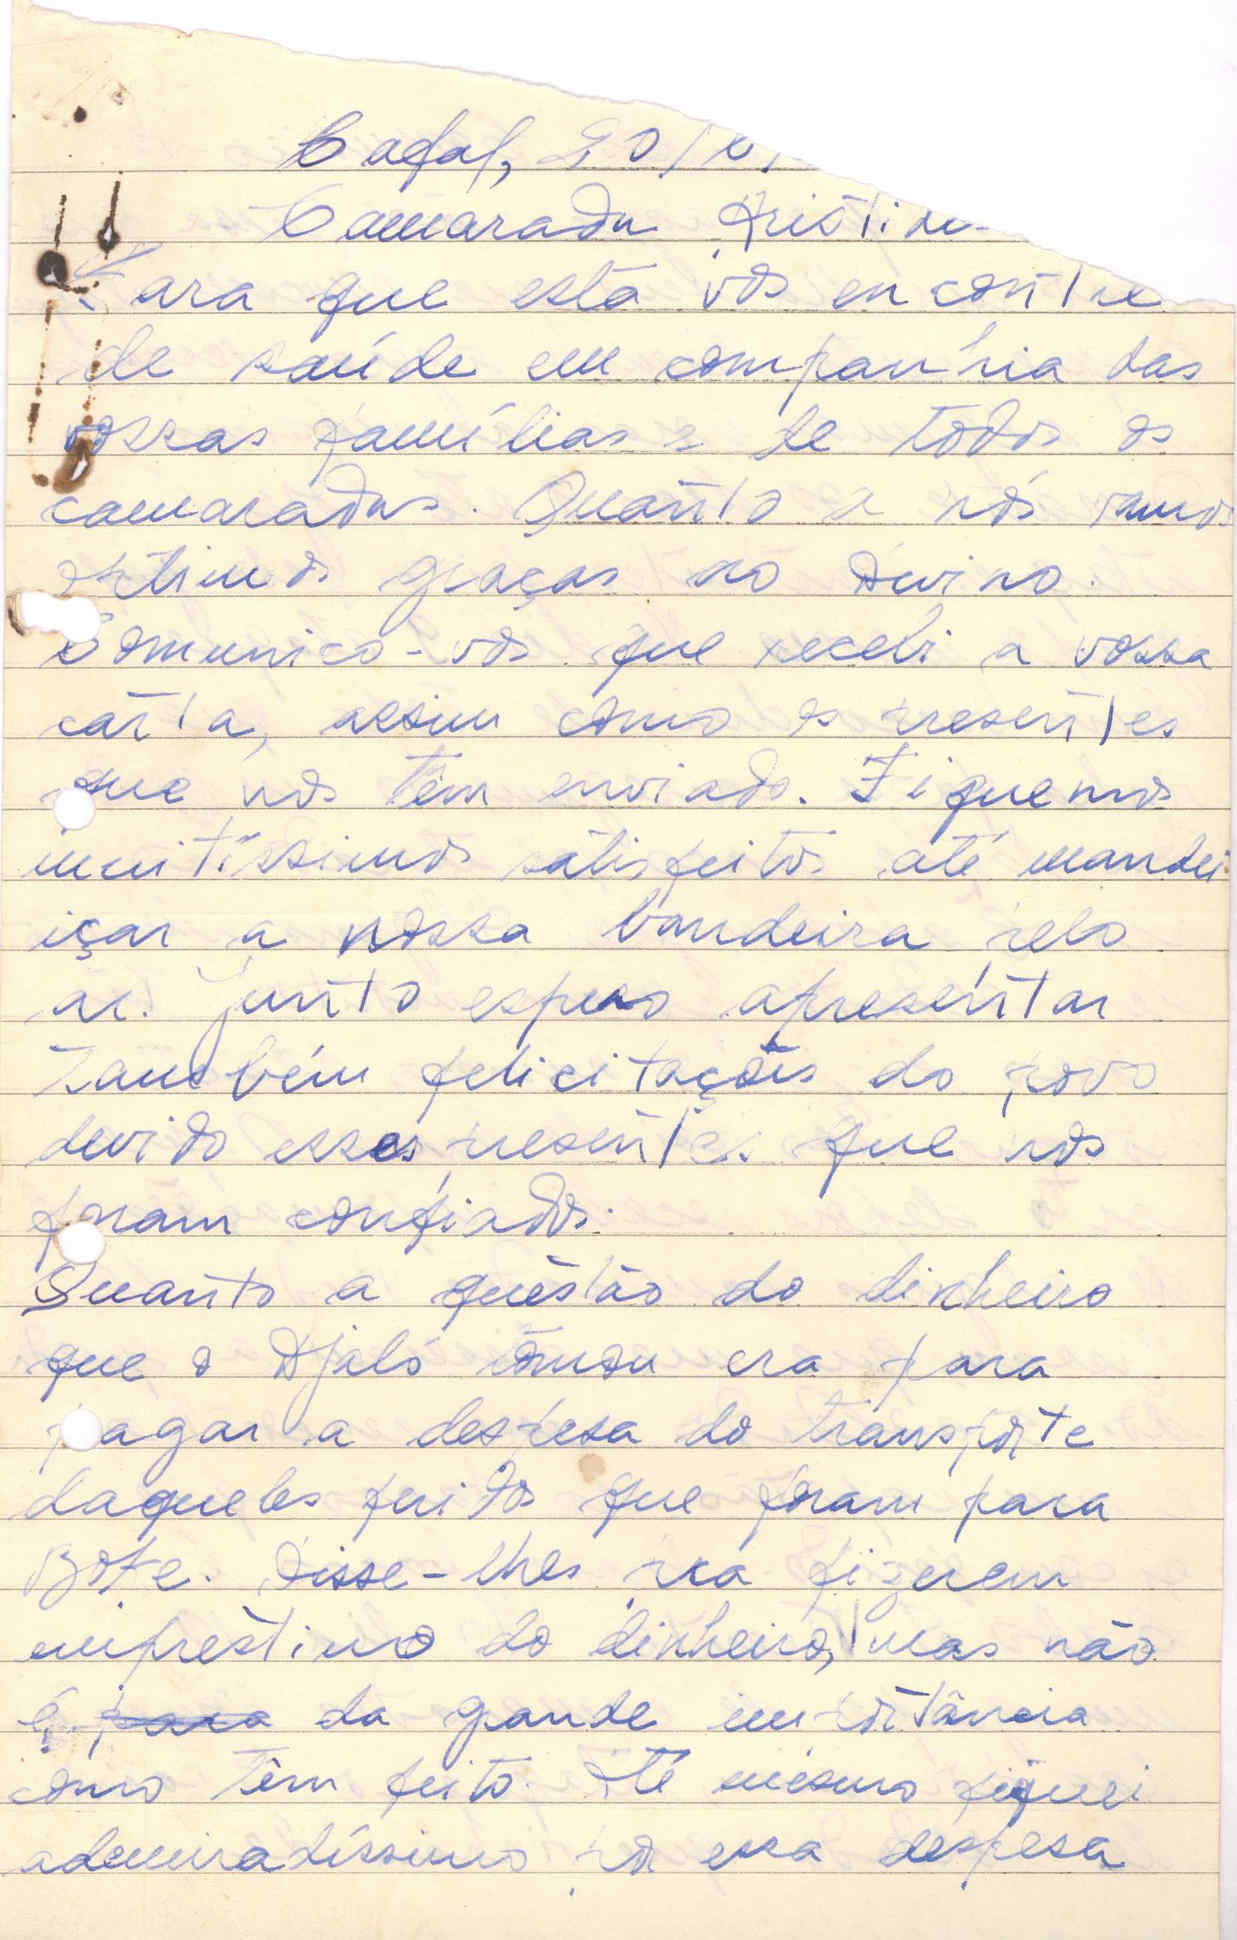 Cafal, 20/
Camarada Aristide
Para que esta vos encontre
de saúde em companhia das
vossas famílias e de todos os
camaradas. Quanto a nós vamos
optimos graças ao Divino.
Comunico-vos que recebi a vossa
carta, assim como os presentes
que nos têm enviado. Fiquemos
muitíssimos satisfeitos até mandei
içar a nossa bandeira pelo
ar. Junto espero apresentar
também felicitações do povo
devido esses presentes que nos
foram confiados.
Quanto a questão do dinheiro
que o Djaló tomou era para
pagar a despesa do transporte
daqueles feridos que foram para
Boké. Disse-lhes pra fizerem
empréstimo do dinheiro, mas não
é para da grande importância
como têm feito. Até mesmo fiquei
ademiradíssimo por essa despesa